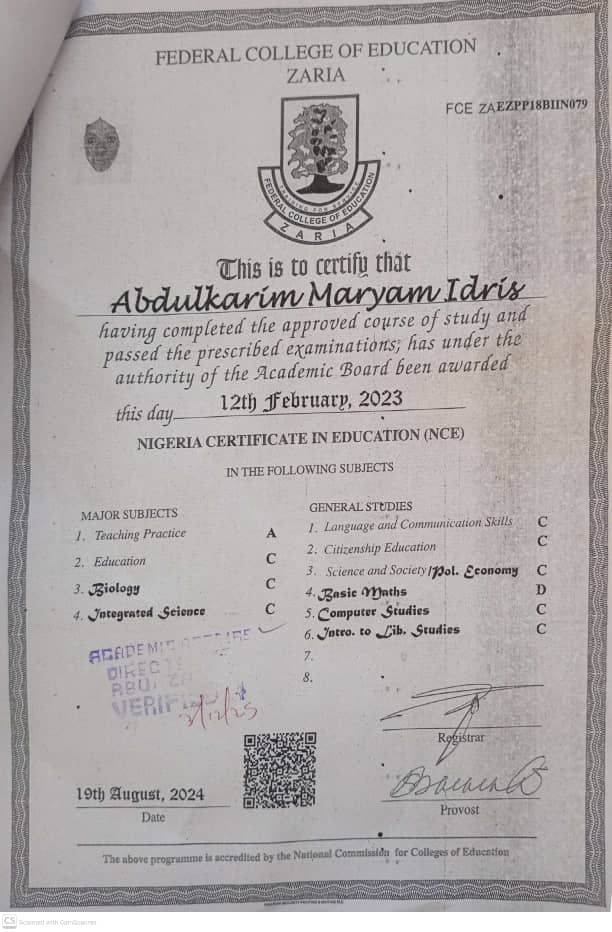 FEDERAL COLLEGE OF EDUCATION
ZARIA
FCE ZAEZPP18BIIN079
TRAINING FOR SERVICE
FEDERAL COLLEGE OF EDUCATION
ZARIA
This is to certify that
Abdulkarim Maryam Idris
having completed the approved course of study and
passed the prescribed examinations, has under the
authority of the Academic Board been awarded
this day 12th February, 2023
NIGERIA CERTIFICATE IN EDUCATION (NCE)
IN THE FOLLOWING SUBJECTS
MAJOR SUBJECTS
1. Teaching Practice A
2. Education C
3. Biology C
4. Integrated Science C
GENERAL STUDIES
1. Language and Communication Skills C
2. Citizenship Education C
3. Science and Society/Pol. Economy C
4. Basic Maths D
5. Computer Studies C
6. Intro. to Lib. Studies C
7.
8.
ACADEMIC
ABU, ZA
VERIFIED
2/12/25
Registrar
19th August, 2024
Date
Provost
The above programme is accredited by the National Commission for Colleges of Education
CS Scanned with CamScanner